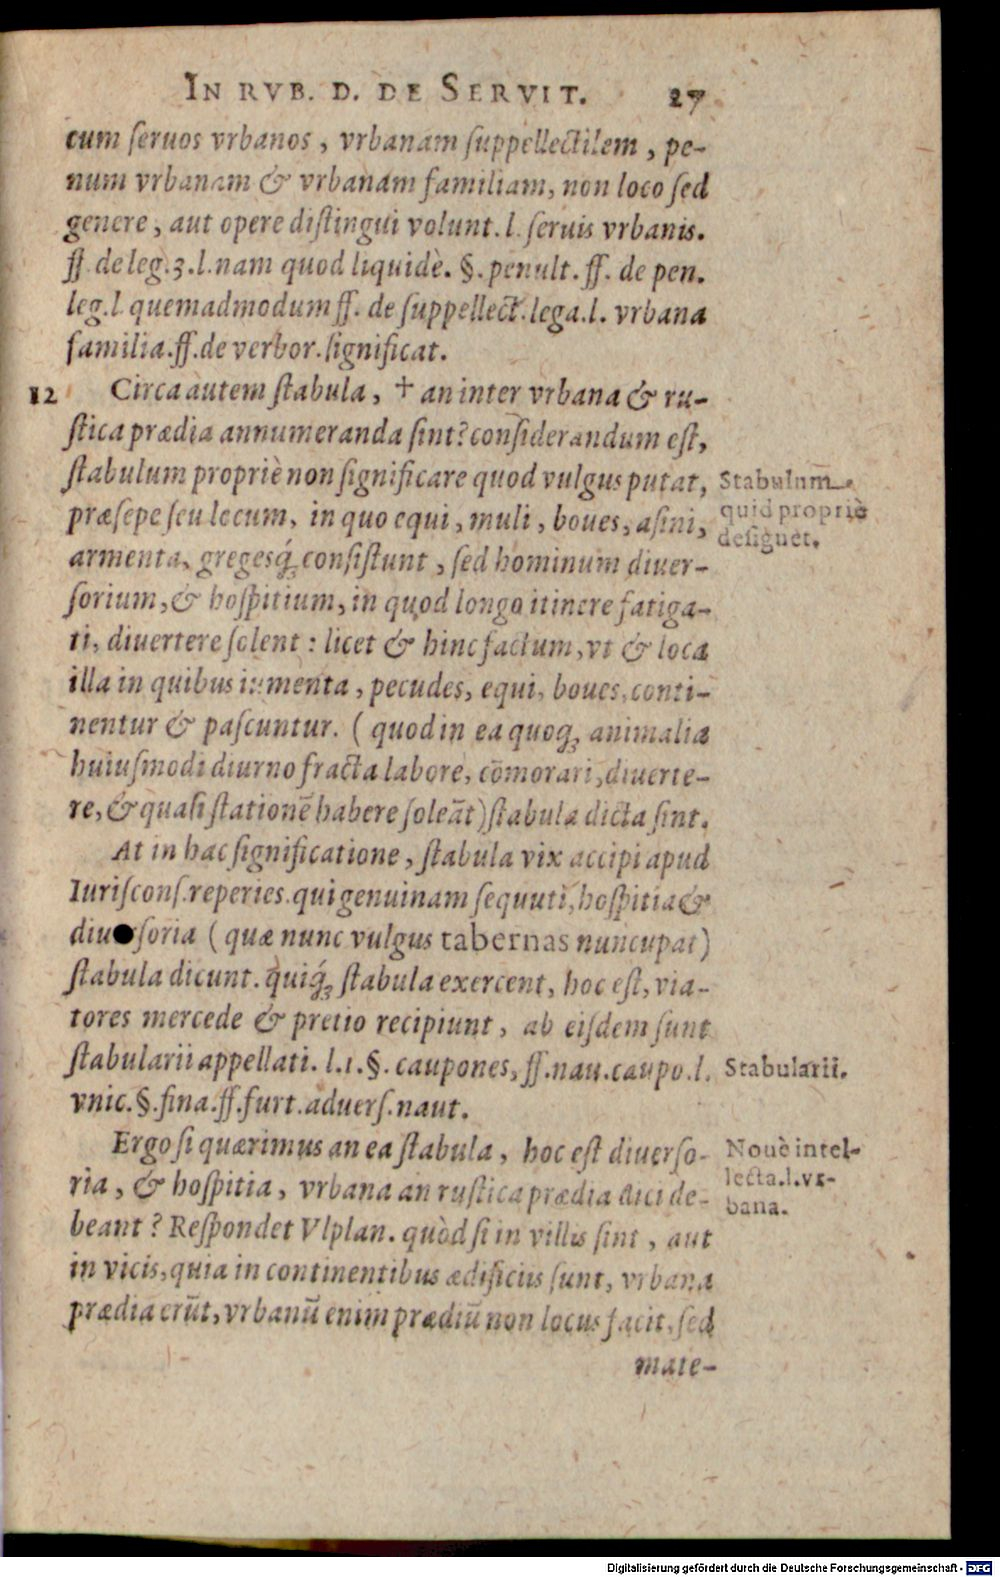 IN RVB. D. DE SERVIT. 27
cum seruos vrbanos, vrbanam suppellectilem, pe-
num vrbanam & vrbanam familiam, non loco sed
genere, aut opere distingui volunt. l. seruis vrbanis.
ff. de leg. 3. l. nam quod liquidè. §. penult. ff. de pen.
leg. l. quemadmodum ff. de suppellect. lega. l. vrbana
familia. ff. de verbor. significat.
12 Circa autem stabula, † an inter vrbana & ru-
stica prædia annumeranda sint? considerandum est,
stabulum propriè non significare quod vulgus putat,
præsepe seu locum, in quo equi, muli, boues, asini,
armenta, gregesq́; consistunt, sed hominum diuer-
sorium, & hospitium, in quod longo itinere fatiga-
ti, diuertere solent: licet & hinc factum, vt & loca
illa in quibus iumenta, pecudes, equi, boues, conti-
nentur & pascuntur. (quod in ea quoq; animalia
huiusmodi diurno fracta labore, cōmorari, diuerte-
re, & quasi stationē habere soleāt) stabula dicta sint.
At in hac significatione, stabula vix accipi apud
Iuriscons. reperies. qui genuinam sequuti, hospitia &
diuersoria (quæ nunc vulgus tabernas nuncupat)
stabula dicunt. quiq́; stabula exercent, hoc est, via-
tores mercede & pretio recipiunt, ab eisdem sunt
stabularii appellati. l. 1. §. caupones, ff. nau. caupo. l.
vnic. §. fina. ff. furt. aduers. naut.
Ergo si quærimus an ea stabula, hoc est diuerso-
ria, & hospitia, vrbana an rustica prædia dici de-
beant? Respondet Vlplan. quòd si in villis sint, aut
in vicis, quia in continentibus ædificiis sunt, vrbana
prædia erūt, vrbanū enim prædiū non locus facit, sed
mate-
Stabulum
quid propriè
desiguet.
Stabularii.
Nouè intel-
lecta. l. vr-
bana.
Digitalisierung gefördert durch die Deutsche Forschungsgemeinschaft - DFG